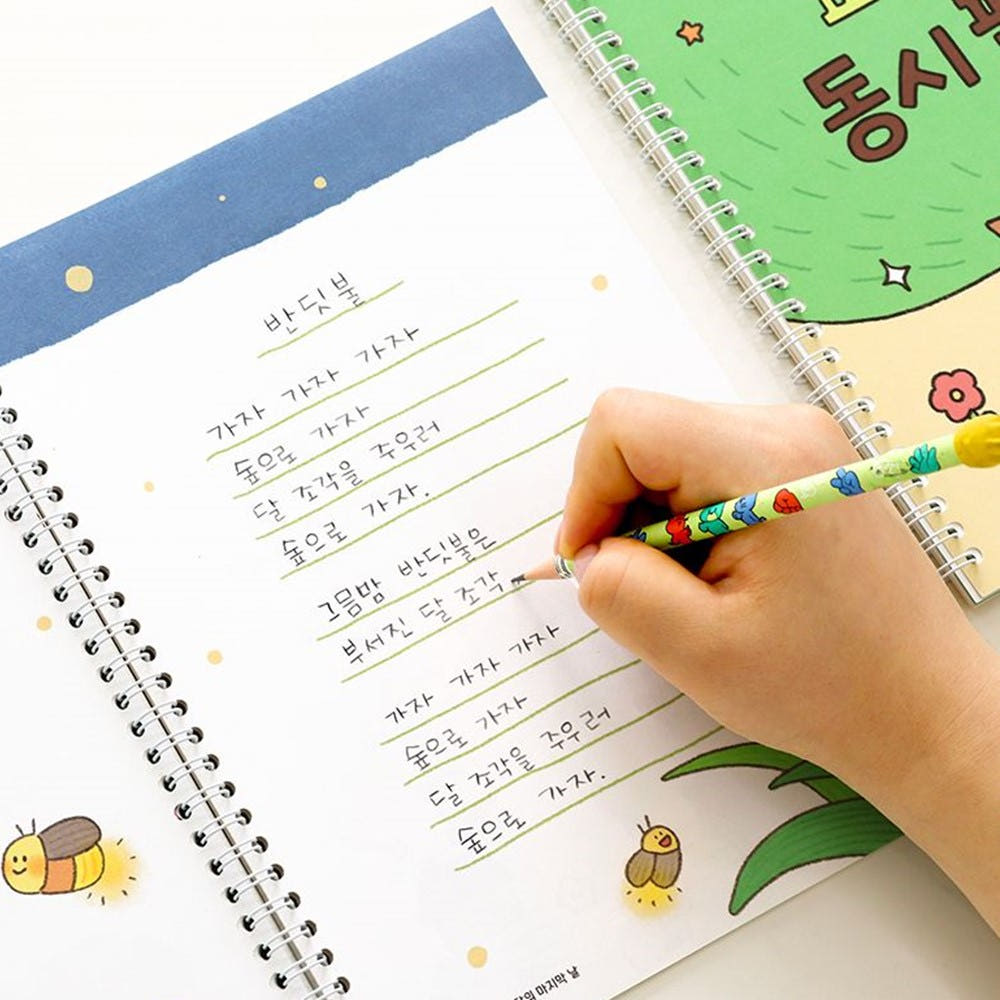 반딧불
가자 가자 가자
숲으로 가자
달 조각을 주우러
숲으로 가자.
그믐밤 반딧불은
부서진 달 조각
가자 가자 가자
숲으로 가자
달 조각을 주우러
숲으로 가자.
마지막 날
동시